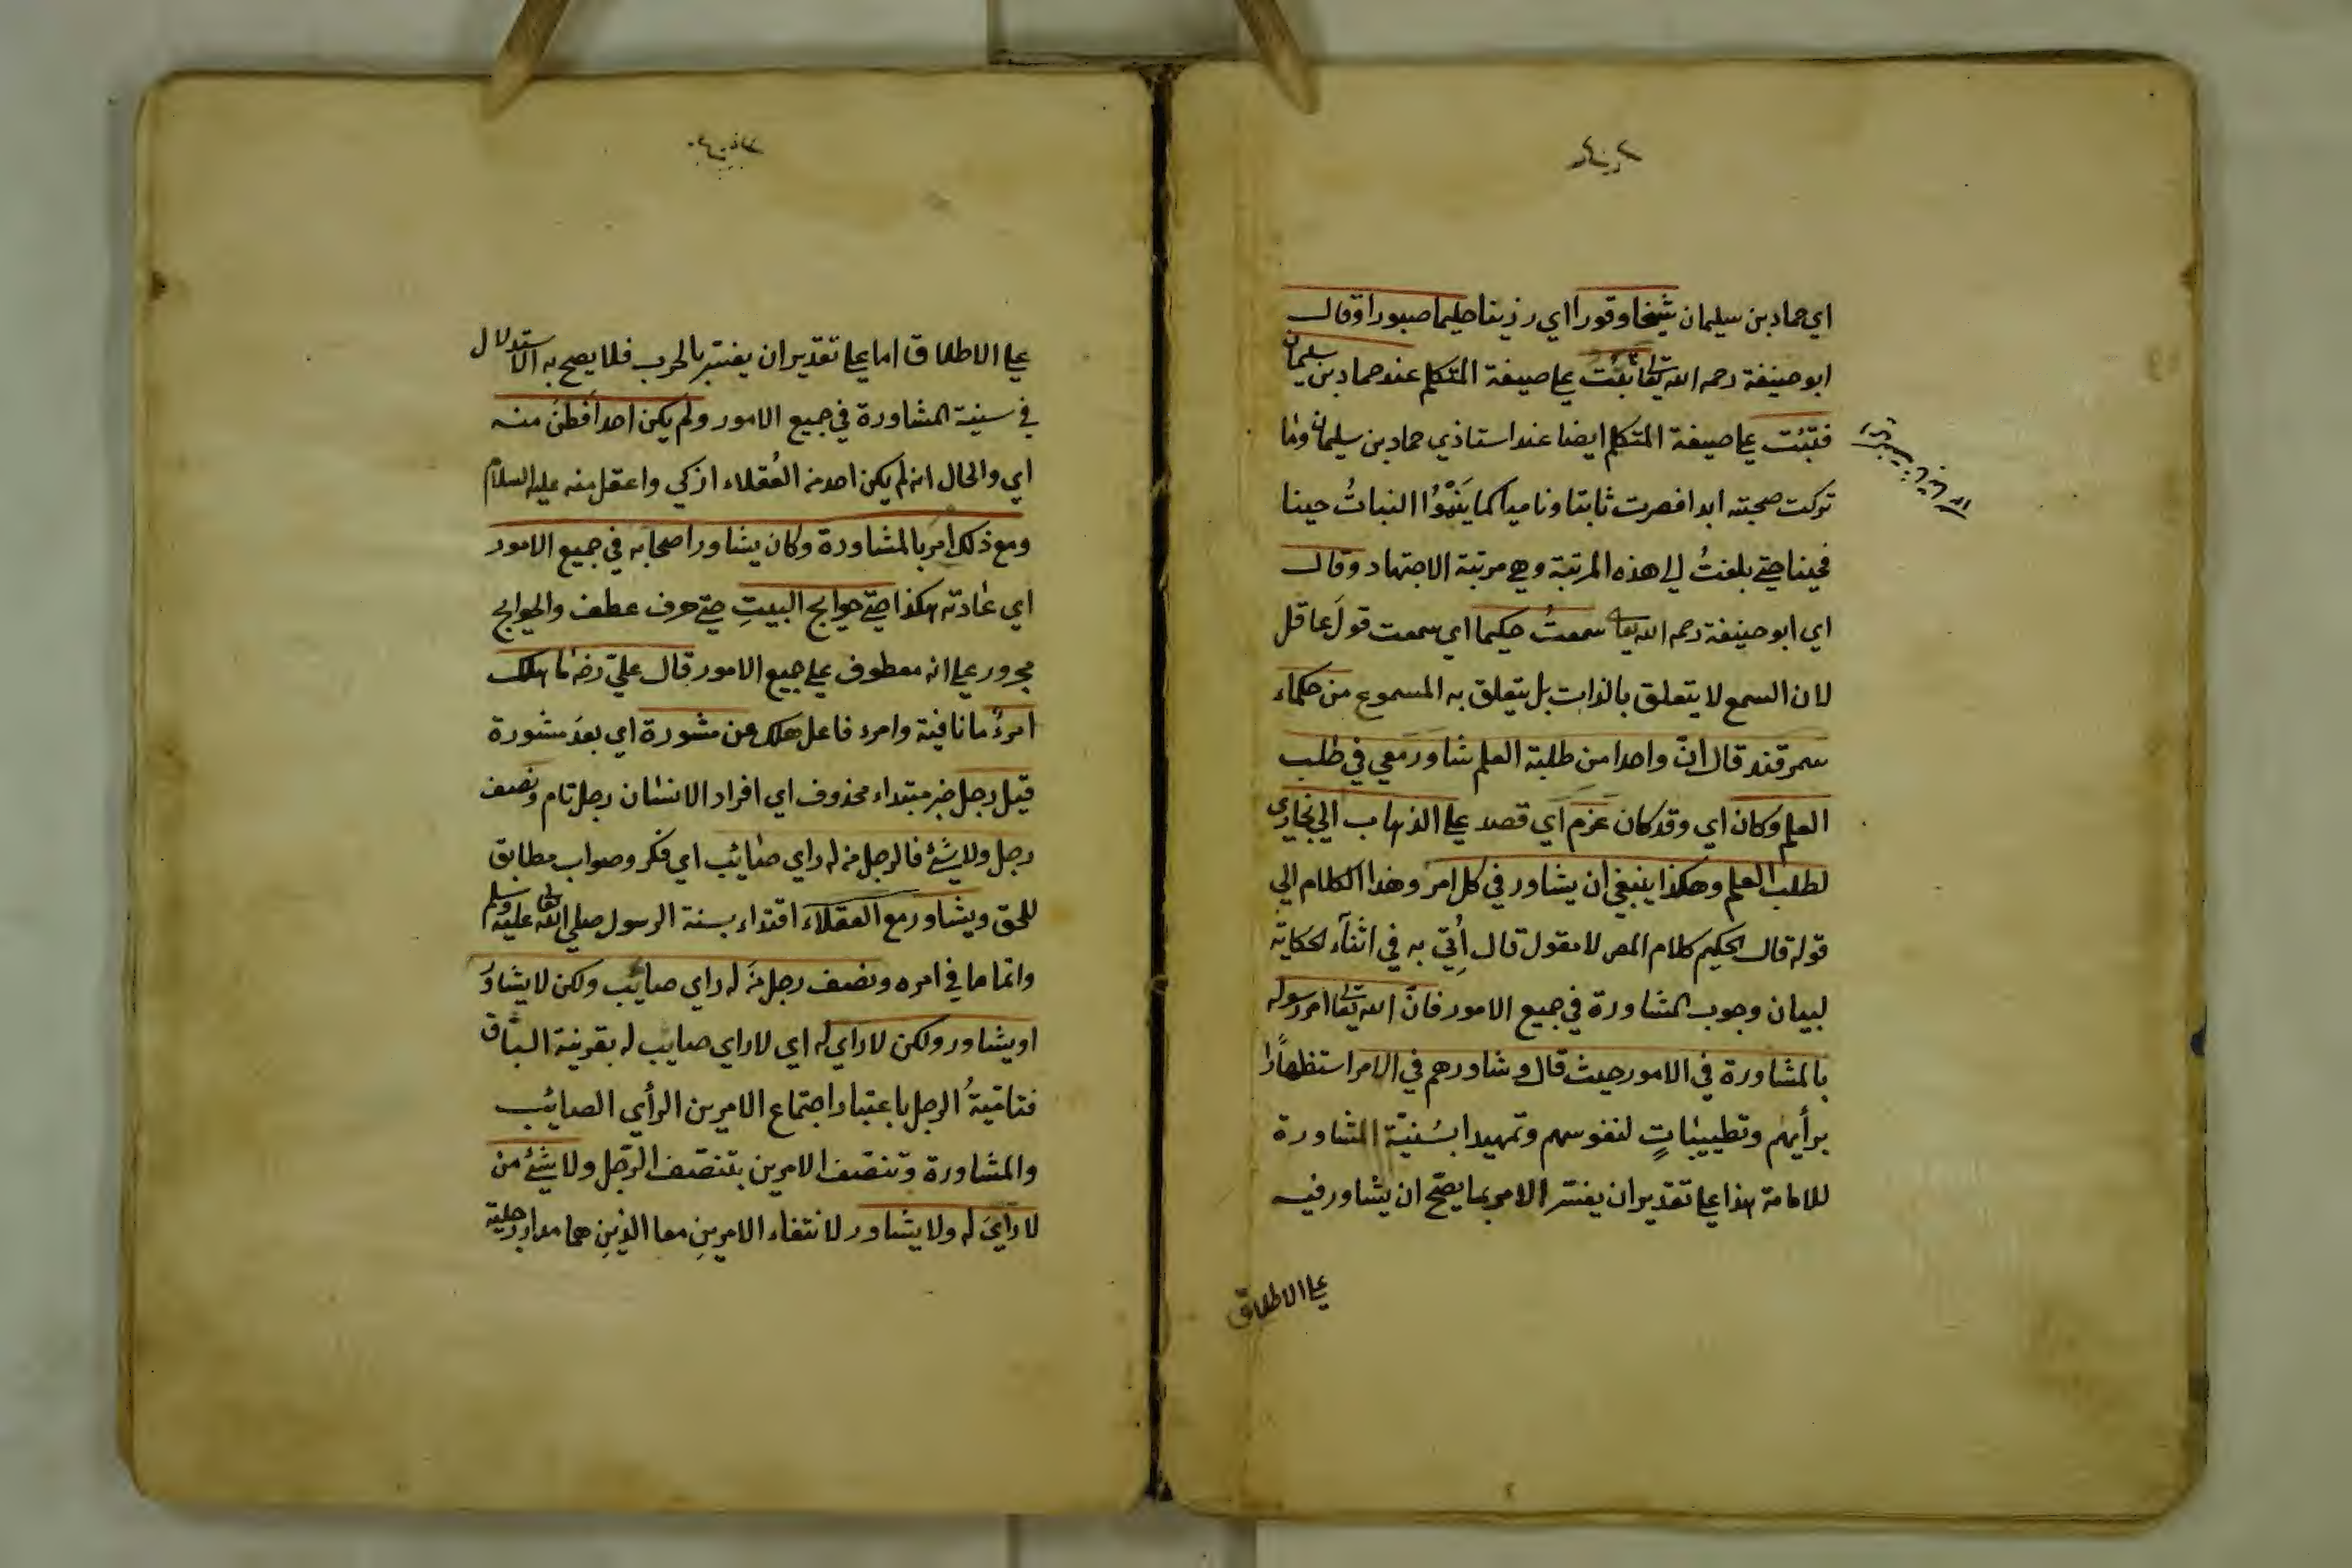 اي حماد بن سليمان شيخا وقورا اي رزينا حليما صبورا وقال
ابو حنيفة رحمه الله تعا بقيت علي صيغة المتكلم عند حماد بن سليمان
فثبتت علي صيغة المتكلم ايضا عند استاذي حماد بن سليمان وما
تركت صحبته ابدا فصرت ثابتا وناميا كما ينمُوُا النباتُ حينا
فحينا حتي بلغتُ الي هذه المرتبة وهي مرتبة الاجتهاد وقال
اي ابو حنيفة رحمه الله تعا سمعتُ حكيما اي سمعت قولَ عاقل
لان السمع لا يتعلق بالذات بل يتعلق به المسموع من حكماء
سمرقند قال انّ واحدا من طلبة العلم شاورَ معي في طلب
العلم وكان اي وقد كان عزم اي قصد علي الذهاب الي بخاري
لطلب العلم وهكذا ينبغي ان يشاور في كل امر وهذا الكلام الي
قوله قال الحكيم كلام المص لا مقول قال اُتِيَ به في اثنآء الحكاية
لبيان وجوب المشاورة في جميع الامور فانّ الله تعا امر رسوله
بالمشاورة في الامور حيث قال وشاورهم في الامر استظهارًا
برأيهم وتطييباتٍ لنفوسهم وتمهيدا بسُنيّة المشاورة
للامامة هذا علي تقدير ان يفسّر الامر بما يصّح ان يشاور فيه
علي الاطلاق
علي الاطلاق اما علي تقدير ان يفسّر بالحرب فلا يصح به الاستدلال
في سنية المشاورة في جميع الامور ولم يكن احد اَفطنُ منه
اي والحال انه لم يكن احد من العُقلاء ازكي واعقل منه عليه السلام
ومع ذلك امرَ بالمشاورة وكان يشاور اصحابه في جميع الامور
اي عادته هكذا حتّي حوايج البيتِ حتي حرف عطف والحوايج
مجرور علي انه معطوف علي جميع الامور قال عليّ رضه ما هلك
امرءٌ ما نافية وامرء فاعل هلك عن مشورة اي بعدَ مشورة
قيل رجل خبر مبتداء محذوف اي افراد الانسان رجل تام ونصف
رجل ولا شئ فالرجل من له راي صائب اي فكر وصواب مطابق
للحق ويشاور مع العقلاء اقتداء بسنة الرسول صلي الله تعا عليه وسلم
واتماما في امره ونصف رجل منَ له راي صائب ولكن لا يشاورُ
او يشاور ولكن لا راي له اي لا راي صايب له بقرينة السّباق
فتاميّةُ الرجل باعتبار اجتماع الامرين الرأي الصائب
والمشاورة وتنصّف الامرين بتنصّف الرّجل ولا شئ من
لا رآيَ له ولا يشاور لانتفاء الامرينِ معا الذينِ هما مدار رجلية